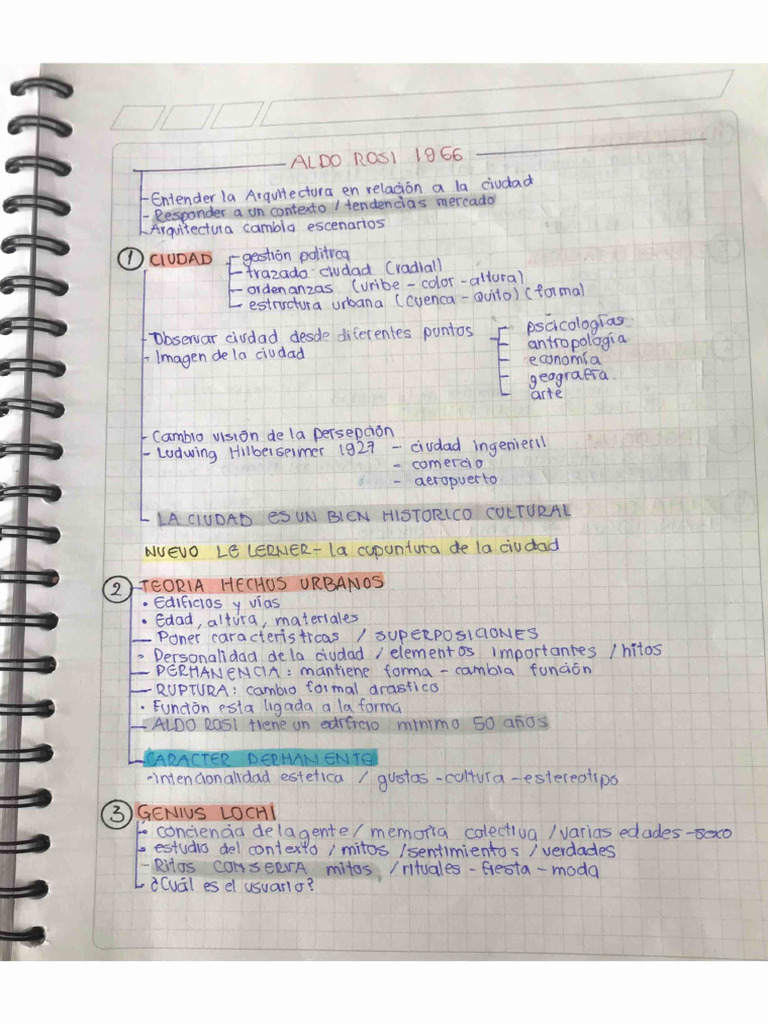 ALDO ROSI 1966
- Entender la Arquitectura en relación a la ciudad
- Responder a un contexto / tendencias mercado
Arquitectura cambia escenarios
1 CIUDAD
- gestión politica
- trazado ciudad (radial)
- ordenanzas (uribe - color - altura)
- estructura urbana (cuenca - quito) (formal)
- Observar ciudad desde diferentes puntos
- Imagen de la ciudad
- pscicologías
- antropología
- economía
- geografía
- arte
- Cambio visión de la persepción
- Ludwing Hilberseimer 1927 - ciudad ingenieril
- comercio
- aeropuerto
LA CIUDAD ES UN BIEN HISTORICO CULTURAL
NUEVO LE LERNER - la cupuntura de la ciudad
2 TEORIA HECHOS URBANOS
• Edificios y vías
• Edad, altura, materiales
- Poner características / SUPERPOSICIONES
• Personalidad de la ciudad / elementos importantes / hitos
- PERMANENCIA: mantiene forma - cambia función
- RUPTURA: cambio formal drastico
• Función esta ligada a la forma
- ALDO ROSI tiene un edificio minimo 50 años
CARACTER PERMANENTE
- Intencionalidad estetica / gustos - cultura - estereotipo
3 GENIUS LOCHI
conciencia de la gente / memoria colectiva / varias edades - sexo
estudio del contexto / mitos / sentimientos / verdades
- Ritos CONSERVA mitos, / rituales - fiesta - moda
¿Cuál es el usuario?